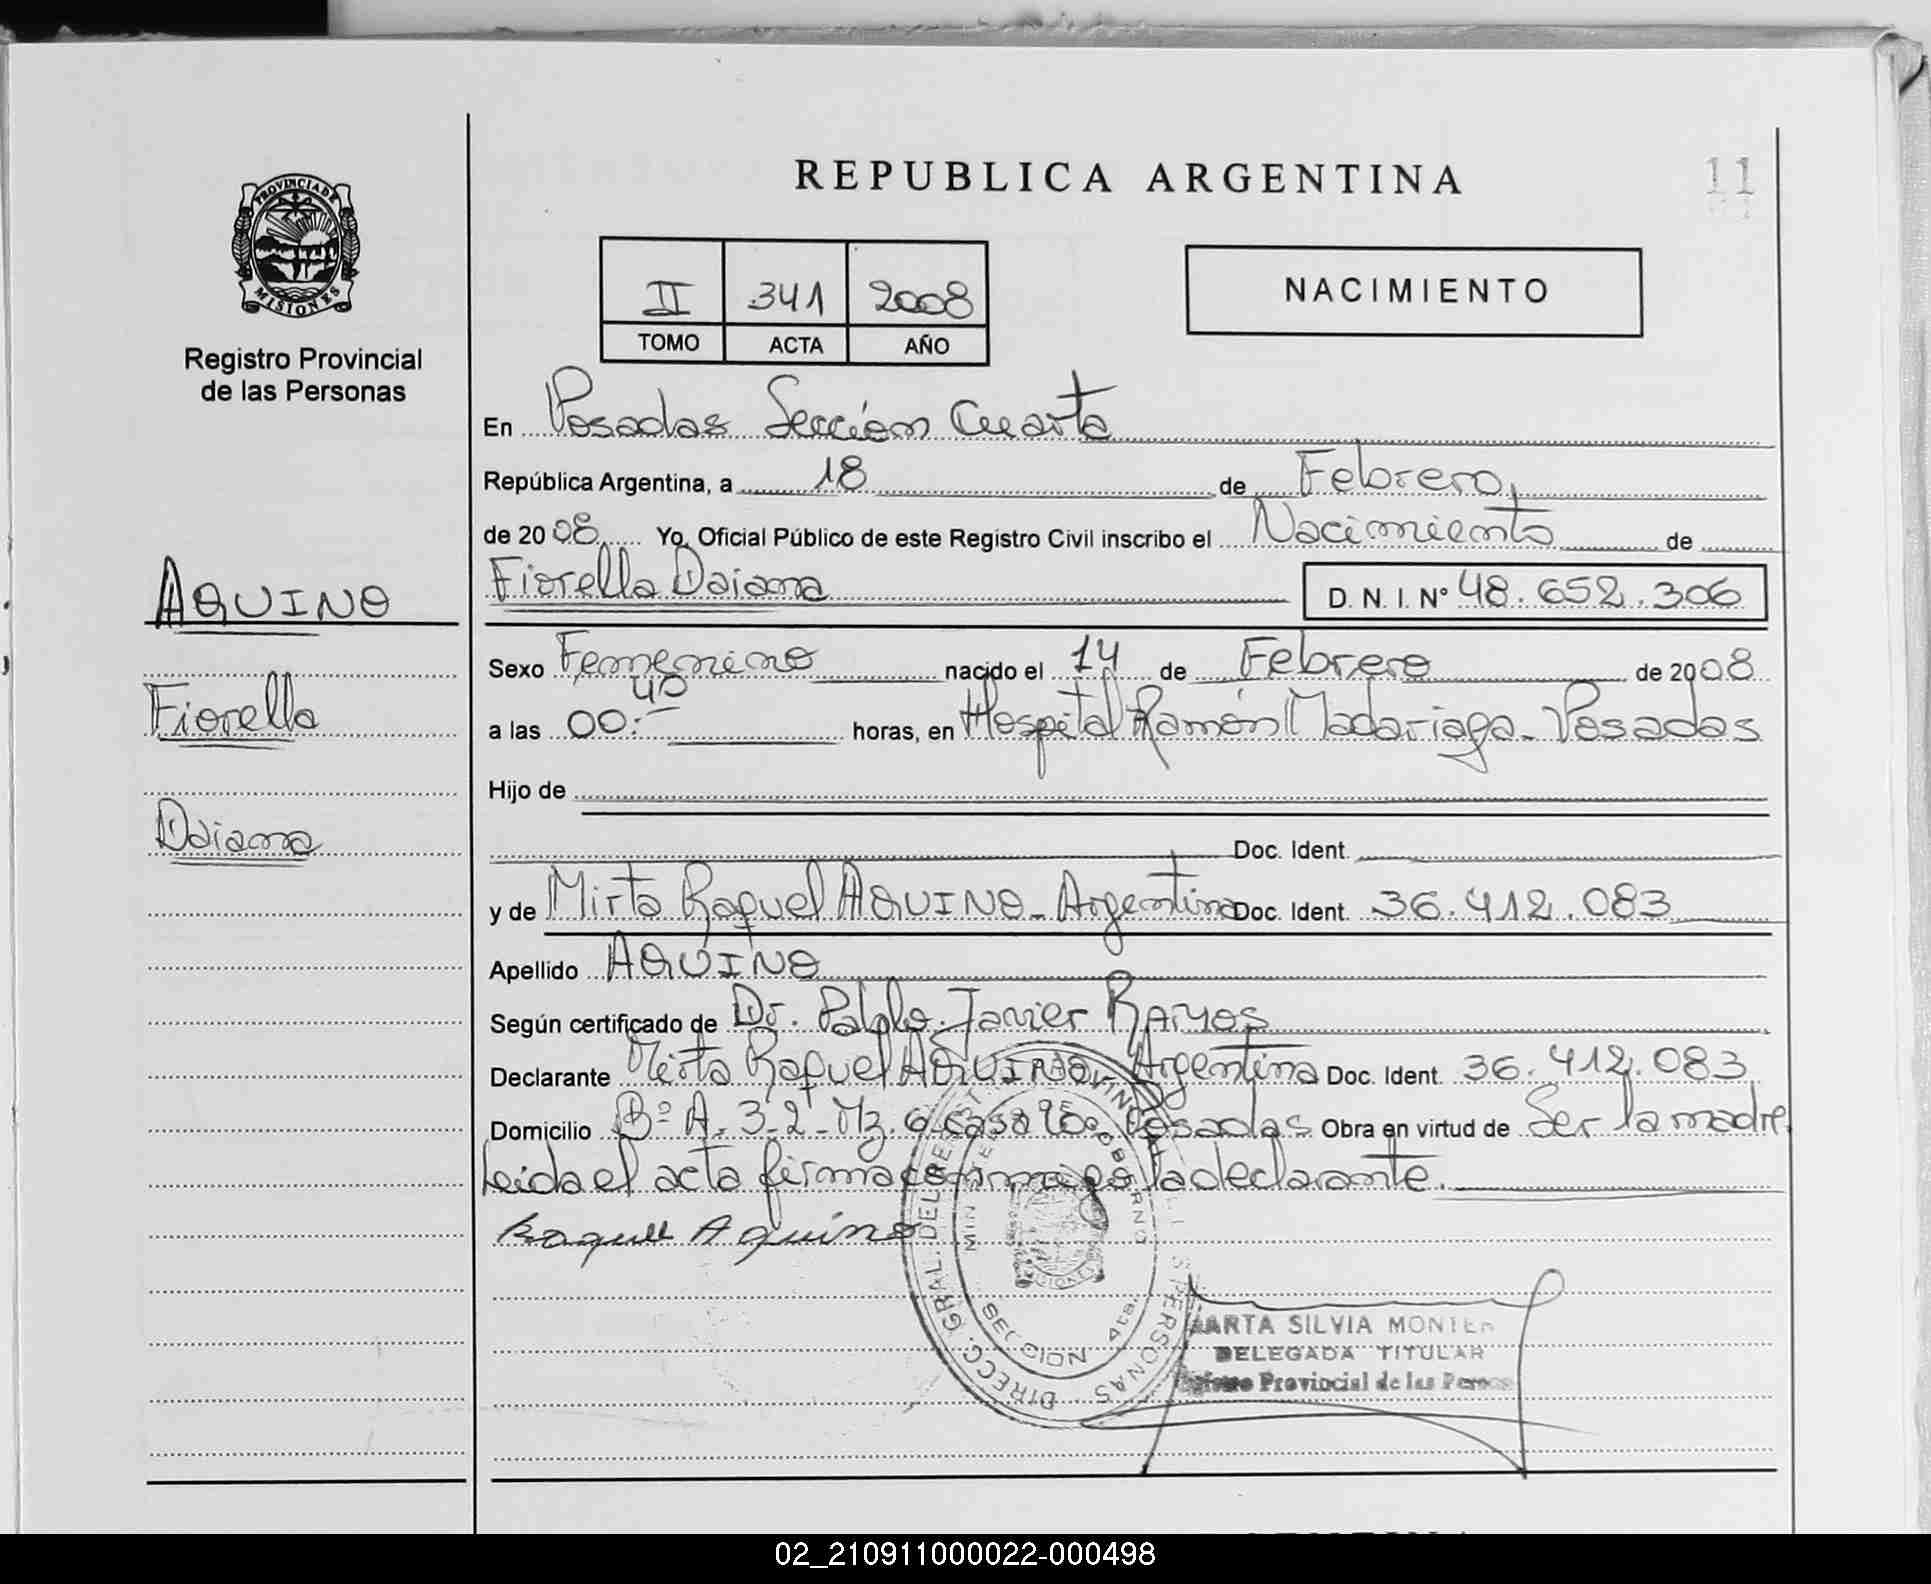 REPUBLICA ARGENTINA
11
PROVINCIA DE
MISIONES
Registro Provincial
de las Personas
II 341 2008
TOMO ACTA AÑO
NACIMIENTO
En Posadas Sección Cuarta
República Argentina, a 18 de Febrero,
de 2008 Yo, Oficial Público de este Registro Civil inscribo el Nacimiento de
AQUINO
Fiorella Daiana D. N. I. N° 48.652.306
Sexo Femenino nacido el 14 de Febrero de 2008
Fiorella
a las 00:40 horas, en Hospital Ramón Madariaga - Posadas
Hijo de
Daiana
Doc. Ident.
y de Mirta Raquel AQUINO - Argentina Doc. Ident. 36.412.083
Apellido AQUINO
Según certificado de Dr. Pablo Javier RAMOS
Declarante Mirta Raquel AQUINO Argentina Doc. Ident. 36.412.083
Domicilio B° A-3-2-Mz. 6 casa Posadas Obra en virtud de Ser la madre.
Leida el acta firma conmigo la declarante.
Raquel Aquino
DIRECC. GRAL. DEL REGIST. PERSONAS
GOBIERNO
SECCION 4ta.
MARTA SILVIA
DELEGADA TITULAR
Registro Provincial de las
02_210911000022-000498